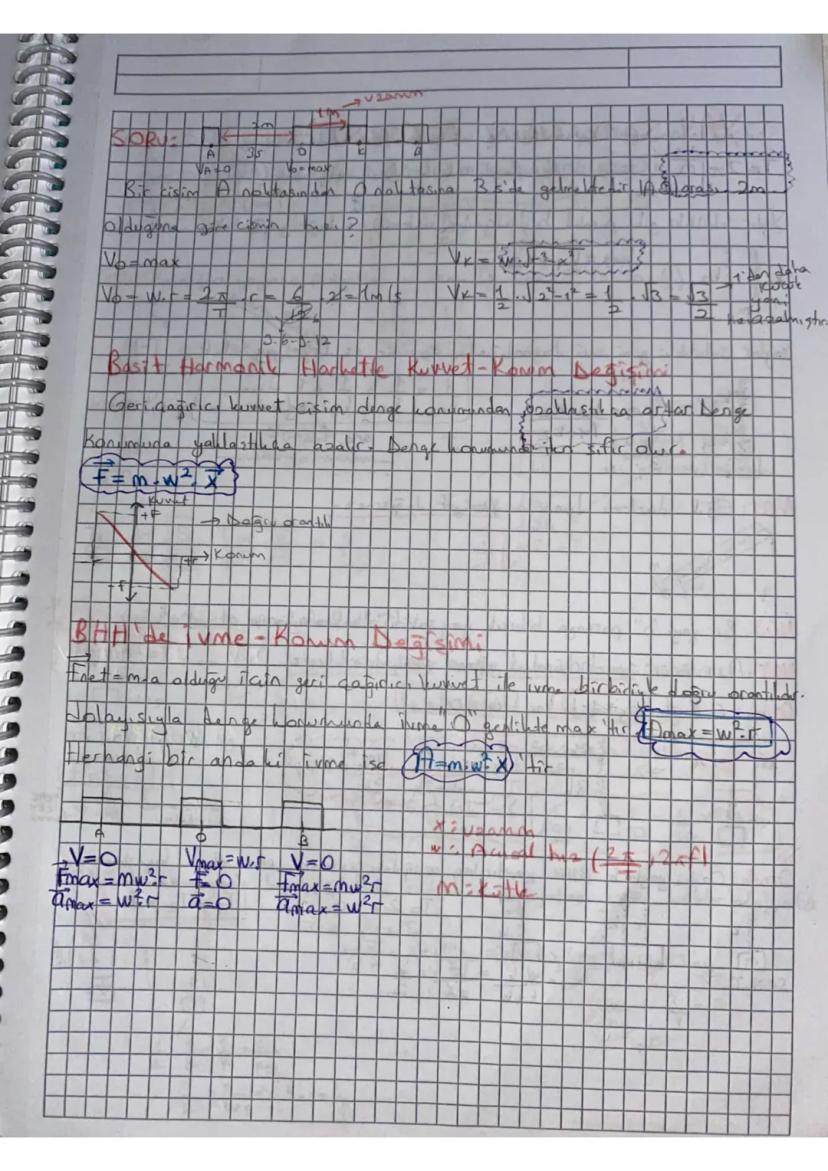 1m → uzanım
2m
SORU:
A 3s O K B
VA=0 Vo=max
Bir cisim A noktasından O noktasına 3 s'de gelmektedir. arası 2m
olduğuna göre cismin hızı?
Vo=max
VK = w.√r²-x²
Vo = w.r = 2π/T . r = 6/12 . 2 = 1m/s
VK = 1/2 . √2²-1² = 1/2 . √3 = √3/2
→ 1'den daha küçük yani hız azalmıştır
3-6-9-12
Basit Harmonik Harkette Kuvvet-Konum Değişimi
Geri çağırıcı kuvvet cisim denge konumundan uzaklaştıkça artar Denge
konumuna yaklaştıkda azalır. Denge konumunda iken sıfır olur.
F = m.w².x
Kuvvet
+F
→ Doğru orantılı
+r → Konum
-r
-F
BHH'de ivme-Konum Değişimi
Fnet=m.a olduğu için geri çağırıcı kuvvet ile ivme birbiriyle doğru orantılıdır.
dolayısıyla denge konumunda ivme "0" genlikte max'tır amax = w².r
Herhangi bir andaki ivme ise A=m.w².x 'tir
A O B
x: uzanım
V=0 Vmax=w.r V=0
w: Açısal hız (2π/T, 2πf)
Fmax=mw²r F=0 Fmax=mw²r
m: Kütle
amax=w².r a=0 amax=w²r